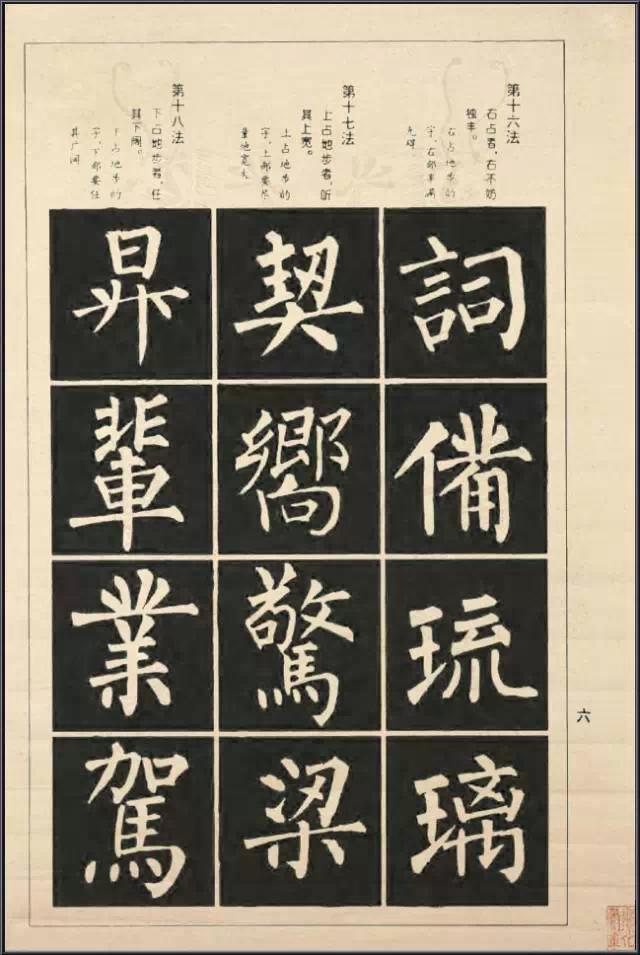 第十六法
右占者，右不妨
独丰。
右占地步的
字，右部丰满
无碍。
詞備琉璃
第十七法
上占地步者，听
其上宽。
上占地步的
字，上部要尽
量地宽大
契嚮驚梁
第十八法
下占地步者，任
其下阔。
下占地步的
字，下部要任
其广阔
昇輩業駕
六